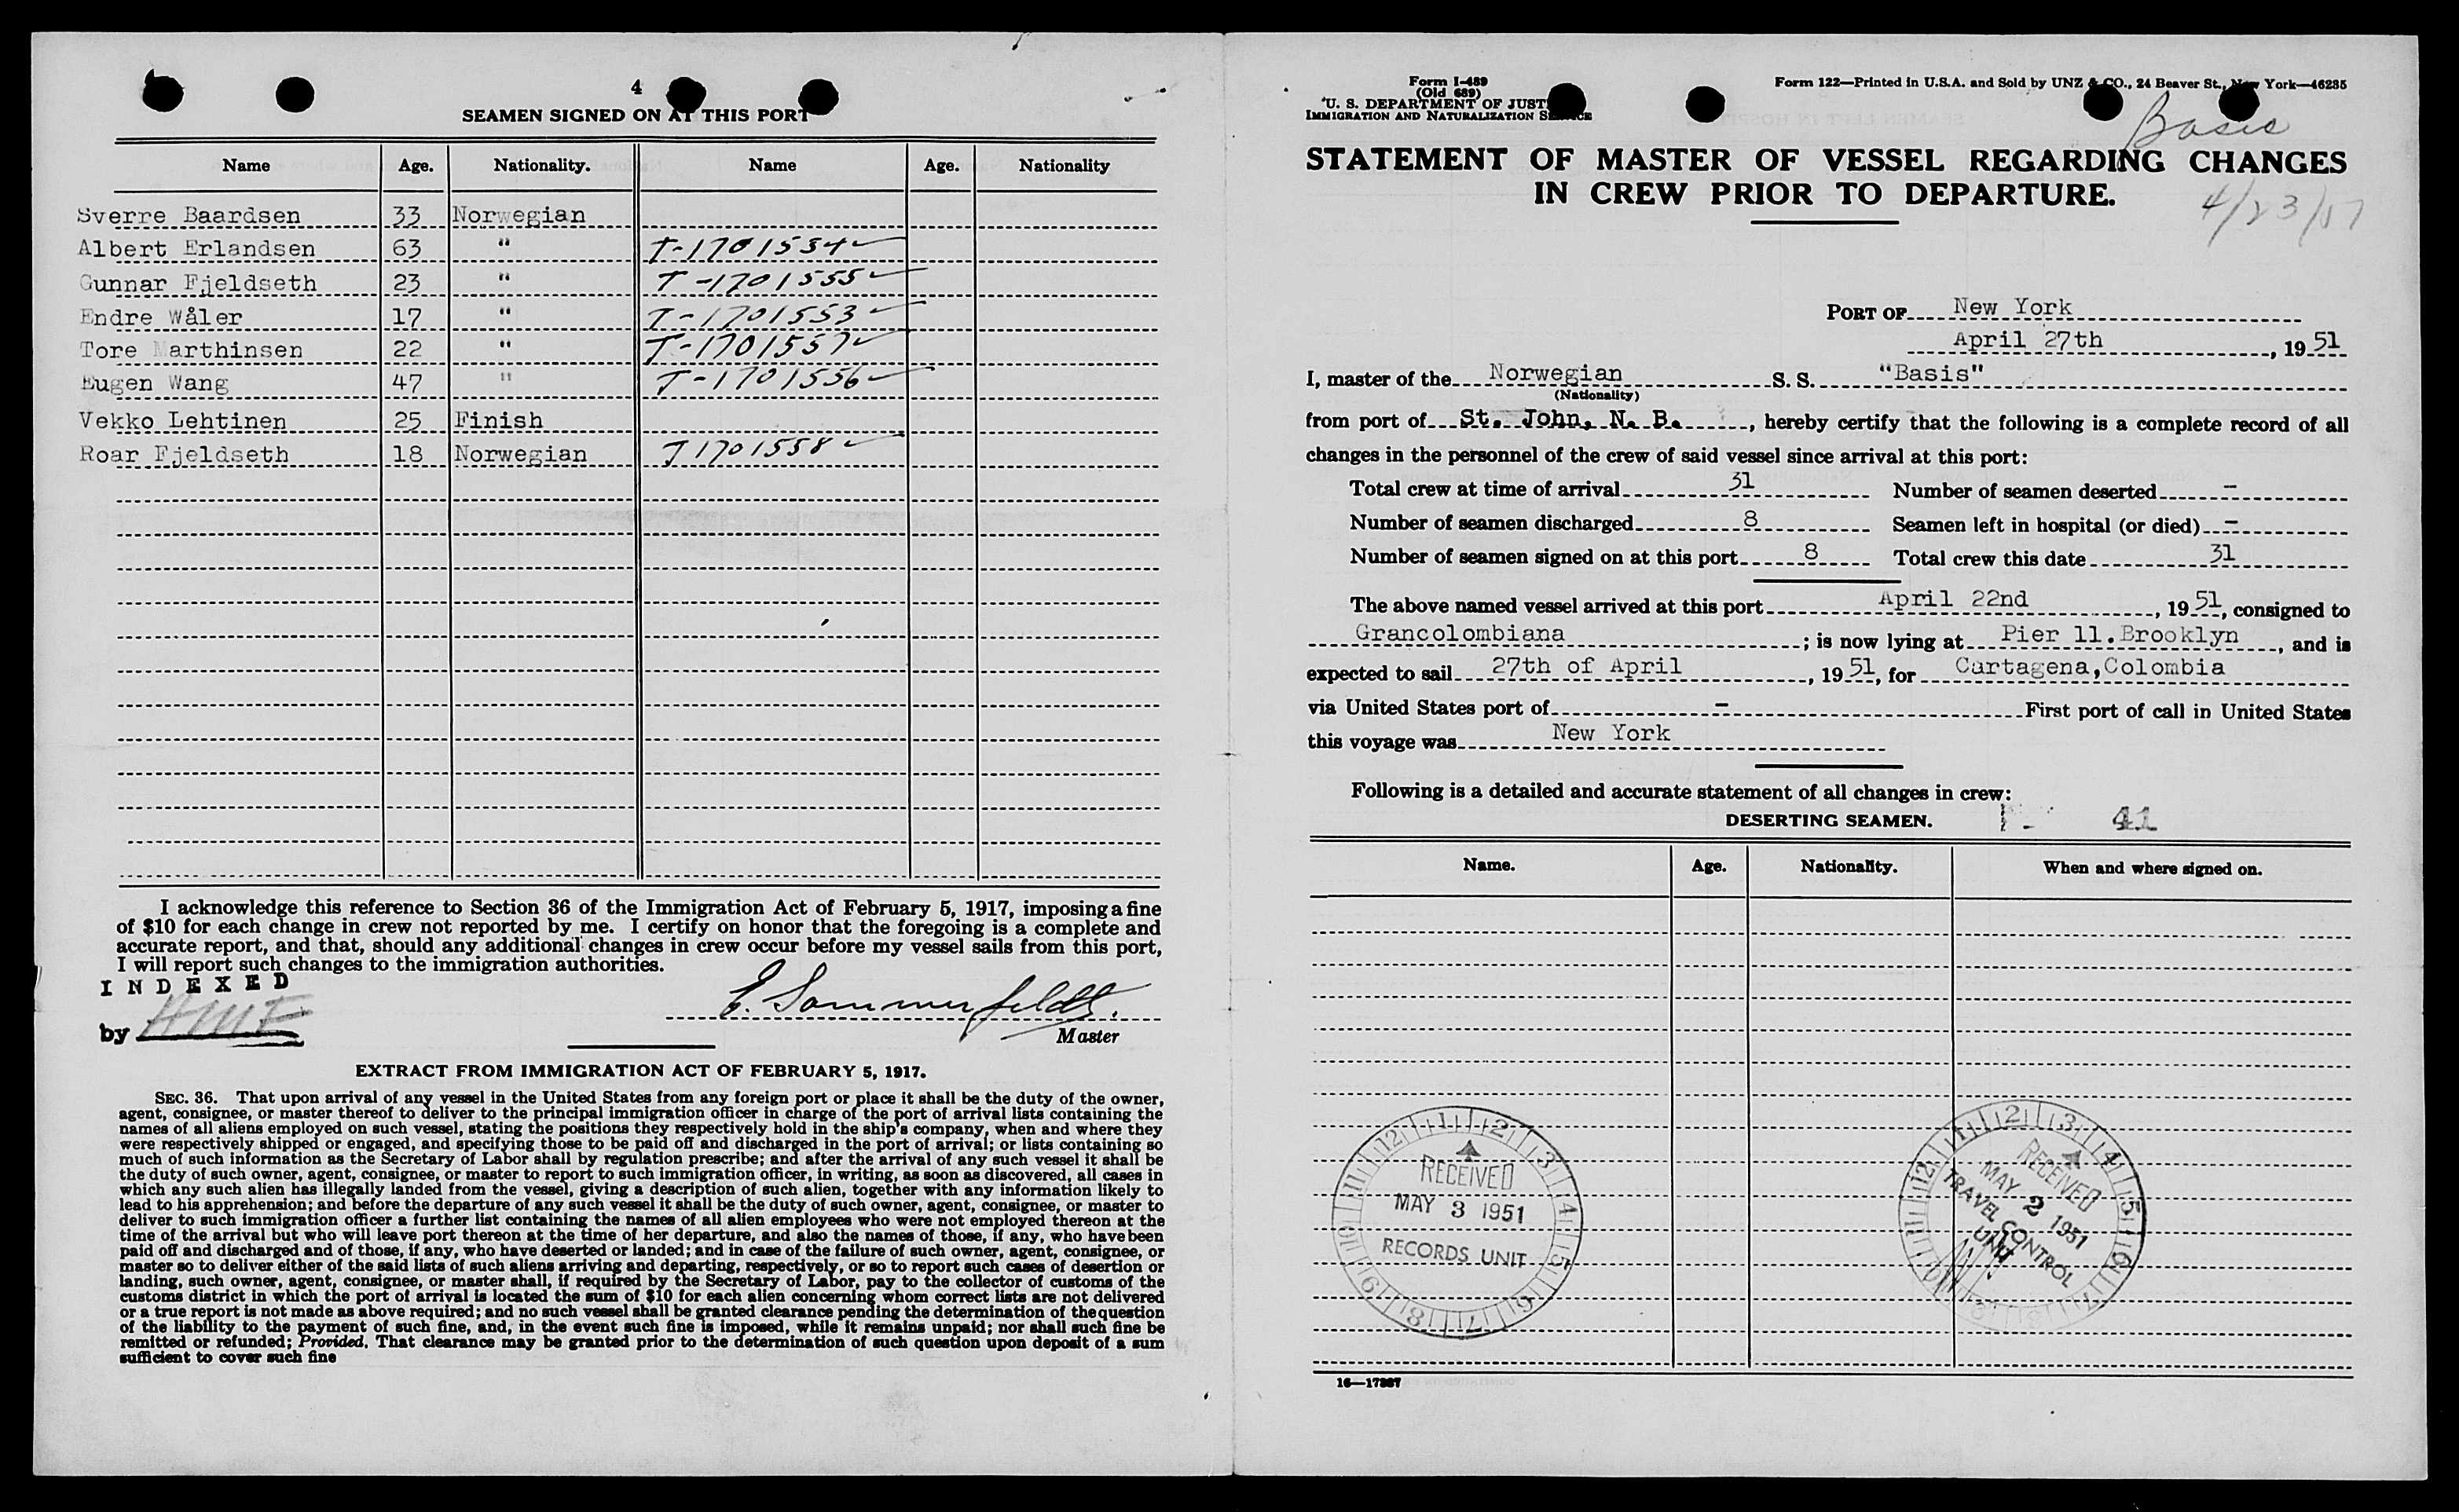 4
SEAMEN SIGNED ON AT THIS PORT
Name Age. Nationality. Name Age. Nationality
Sverre Baardsen 33 Norwegian
Albert Erlandsen 63 " T-1701534
Gunnar Fjeldseth 23 " T-1701555
Endre Wåler 17 " T-1701553
Tore Marthinsen 22 " T-1701557
Eugen Wang 47 " T-1701556
Vekko Lehtinen 25 Finish
Roar Fjeldseth 18 Norwegian T1701558
I acknowledge this reference to Section 36 of the Immigration Act of February 5, 1917, imposing a fine
of $10 for each change in crew not reported by me. I certify on honor that the foregoing is a complete and
accurate report, and that, should any additional changes in crew occur before my vessel sails from this port,
I will report such changes to the immigration authorities.
INDEXED
by
E. Sommerfeldt.
Master
EXTRACT FROM IMMIGRATION ACT OF FEBRUARY 5, 1917.
SEC. 36. That upon arrival of any vessel in the United States from any foreign port or place it shall be the duty of the owner,
agent, consignee, or master thereof to deliver to the principal immigration officer in charge of the port of arrival lists containing the
names of all aliens employed on such vessel, stating the positions they respectively hold in the ship's company, when and where they
were respectively shipped or engaged, and specifying those to be paid off and discharged in the port of arrival; or lists containing so
much of such information as the Secretary of Labor shall by regulation prescribe; and after the arrival of any such vessel it shall be
the duty of such owner, agent, consignee, or master to report to such immigration officer, in writing, as soon as discovered, all cases in
which any such alien has illegally landed from the vessel, giving a description of such alien, together with any information likely to
lead to his apprehension; and before the departure of any such vessel it shall be the duty of such owner, agent, consignee, or master to
deliver to such immigration officer a further list containing the names of all alien employees who were not employed thereon at the
time of the arrival but who will leave port thereon at the time of her departure, and also the names of those, if any, who have been
paid off and discharged and of those, if any, who have deserted or landed; and in case of the failure of such owner, agent, consignee, or
master so to deliver either of the said lists of such aliens arriving and departing, respectively, or so to report such cases of desertion or
landing, such owner, agent, consignee, or master shall, if required by the Secretary of Labor, pay to the collector of customs of the
customs district in which the port of arrival is located the sum of $10 for each alien concerning whom correct lists are not delivered
or a true report is not made as above required; and no such vessel shall be granted clearance pending the determination of the question
of the liability to the payment of such fine, and, in the event such fine is imposed, while it remains unpaid; nor shall such fine be
remitted or refunded; Provided, That clearance may be granted prior to the determination of such question upon deposit of a sum
sufficient to cover such fine
Form I-489
(Old 689)
U. S. DEPARTMENT OF JUSTICE
IMMIGRATION AND NATURALIZATION SERVICE
Form 122—Printed in U.S.A. and Sold by UNZ & CO., 24 Beaver St., New York—46235
Basis
STATEMENT OF MASTER OF VESSEL REGARDING CHANGES
IN CREW PRIOR TO DEPARTURE.
4/23/51
PORT OF New York
April 27th, 1951
I, master of the Norwegian S. S. "Basis"
(Nationality)
from port of St. John, N. B., hereby certify that the following is a complete record of all
changes in the personnel of the crew of said vessel since arrival at this port:
Total crew at time of arrival 31 Number of seamen deserted -
Number of seamen discharged 8 Seamen left in hospital (or died) -
Number of seamen signed on at this port 8 Total crew this date 31
The above named vessel arrived at this port April 22nd, 1951, consigned to
Grancolombiana; is now lying at Pier 11.Brooklyn, and is
expected to sail 27th of April, 1951, for Cartagena,Colombia
via United States port of - First port of call in United States
this voyage was New York
Following is a detailed and accurate statement of all changes in crew:
DESERTING SEAMEN. 41
Name. Age. Nationality. When and where signed on.
RECEIVED
MAY 3 1951
RECORDS UNIT
RECEIVED
MAY 2 1951
TRAVEL CONTROL
UNIT